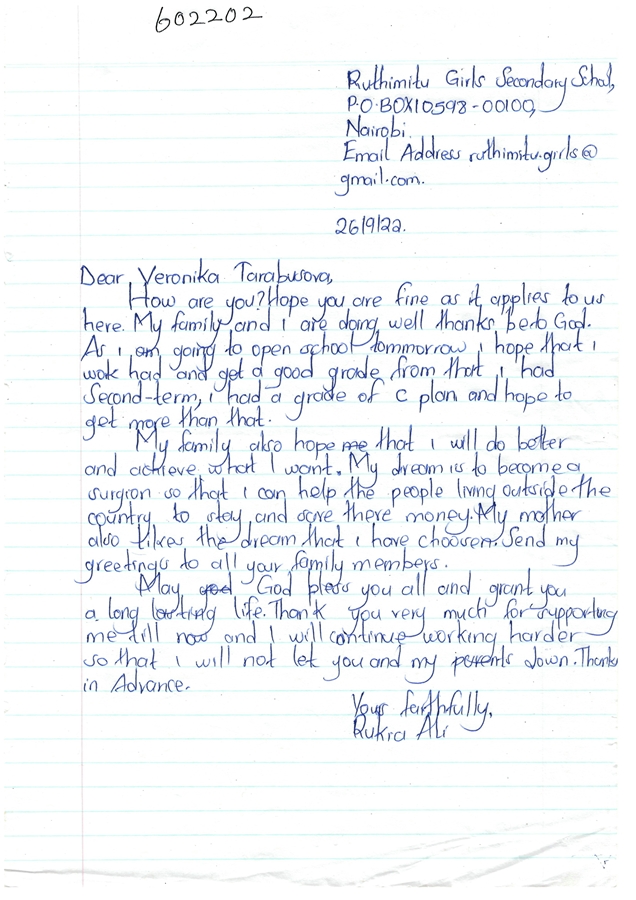 602202
Ruthimitu Girls Secondary Schol,
P.O.BOX10598-00100,
Nairobi.
Email Address ruthimitu.girls@
gmail.com.
26/9/22.
Dear Veronika Tarabusova,
How are you? Hope you are fine as it applies to us
here. My family and i are doing well thanks be to God.
As i am going to open school tommorrow i hope that i
wok had and get a good grade from that i had
Second-term, i had a grade of c plan and hope to
get more than that.
My family also hope me that i will do better
and achieve what I want. My dream is to become a
surgion so that i can help the people living outside the
country to stay and save there money. My mother
also likes the dream that i have choosen. Send my
greetings to all your family members.
May god God bless you all and grant you
a long lasting life. Thank you very much for supporting
me till now and I will continue working harder
so that i will not let you and my parents down. Thanks
in Advance.
Yours faithfully,
Rukia Ali